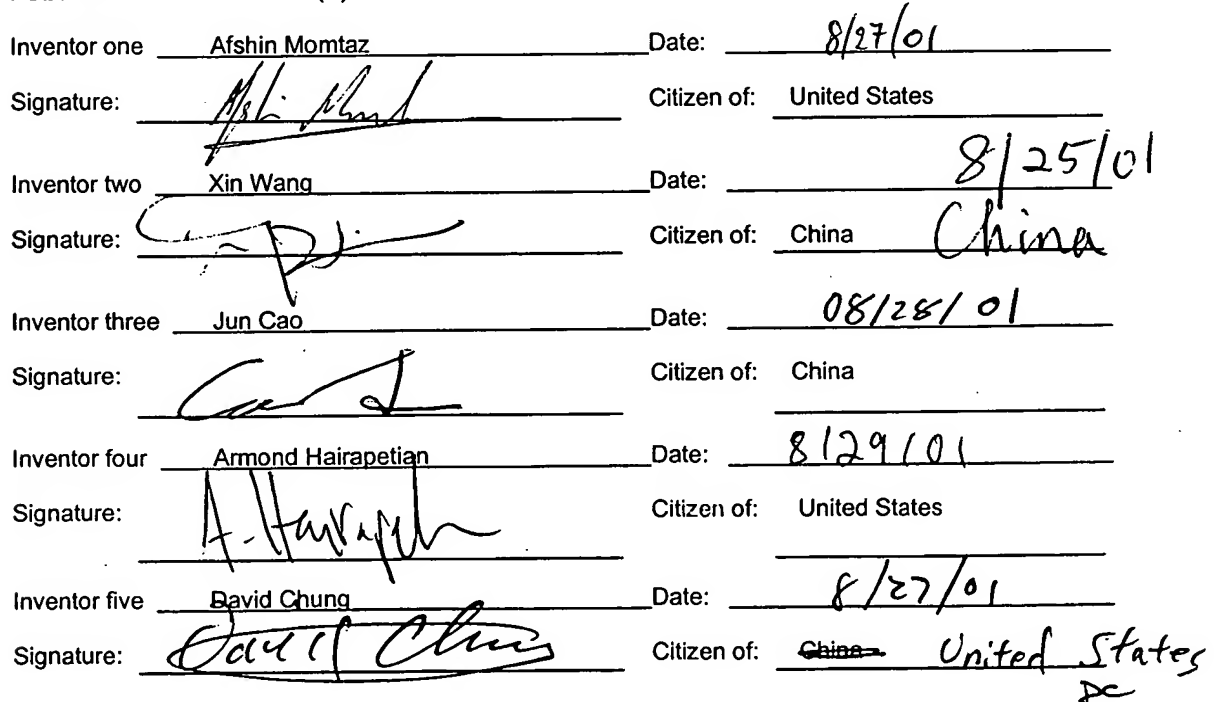 Inventor one Afshin Momtaz Date: 8/27/01
Signature: Citizen of: United States
Inventor two Xin Wang Date: 8/25/01
Signature: Citizen of: China China
Inventor three Jun Cao Date: 08/28/01
Signature: Citizen of: China
Inventor four Armond Hairapetian Date: 8/29/01
Signature: A. Hairapetian Citizen of: United States
Inventor five David Chung Date: 8/27/01
Signature: David Chung Citizen of: China United States
DC